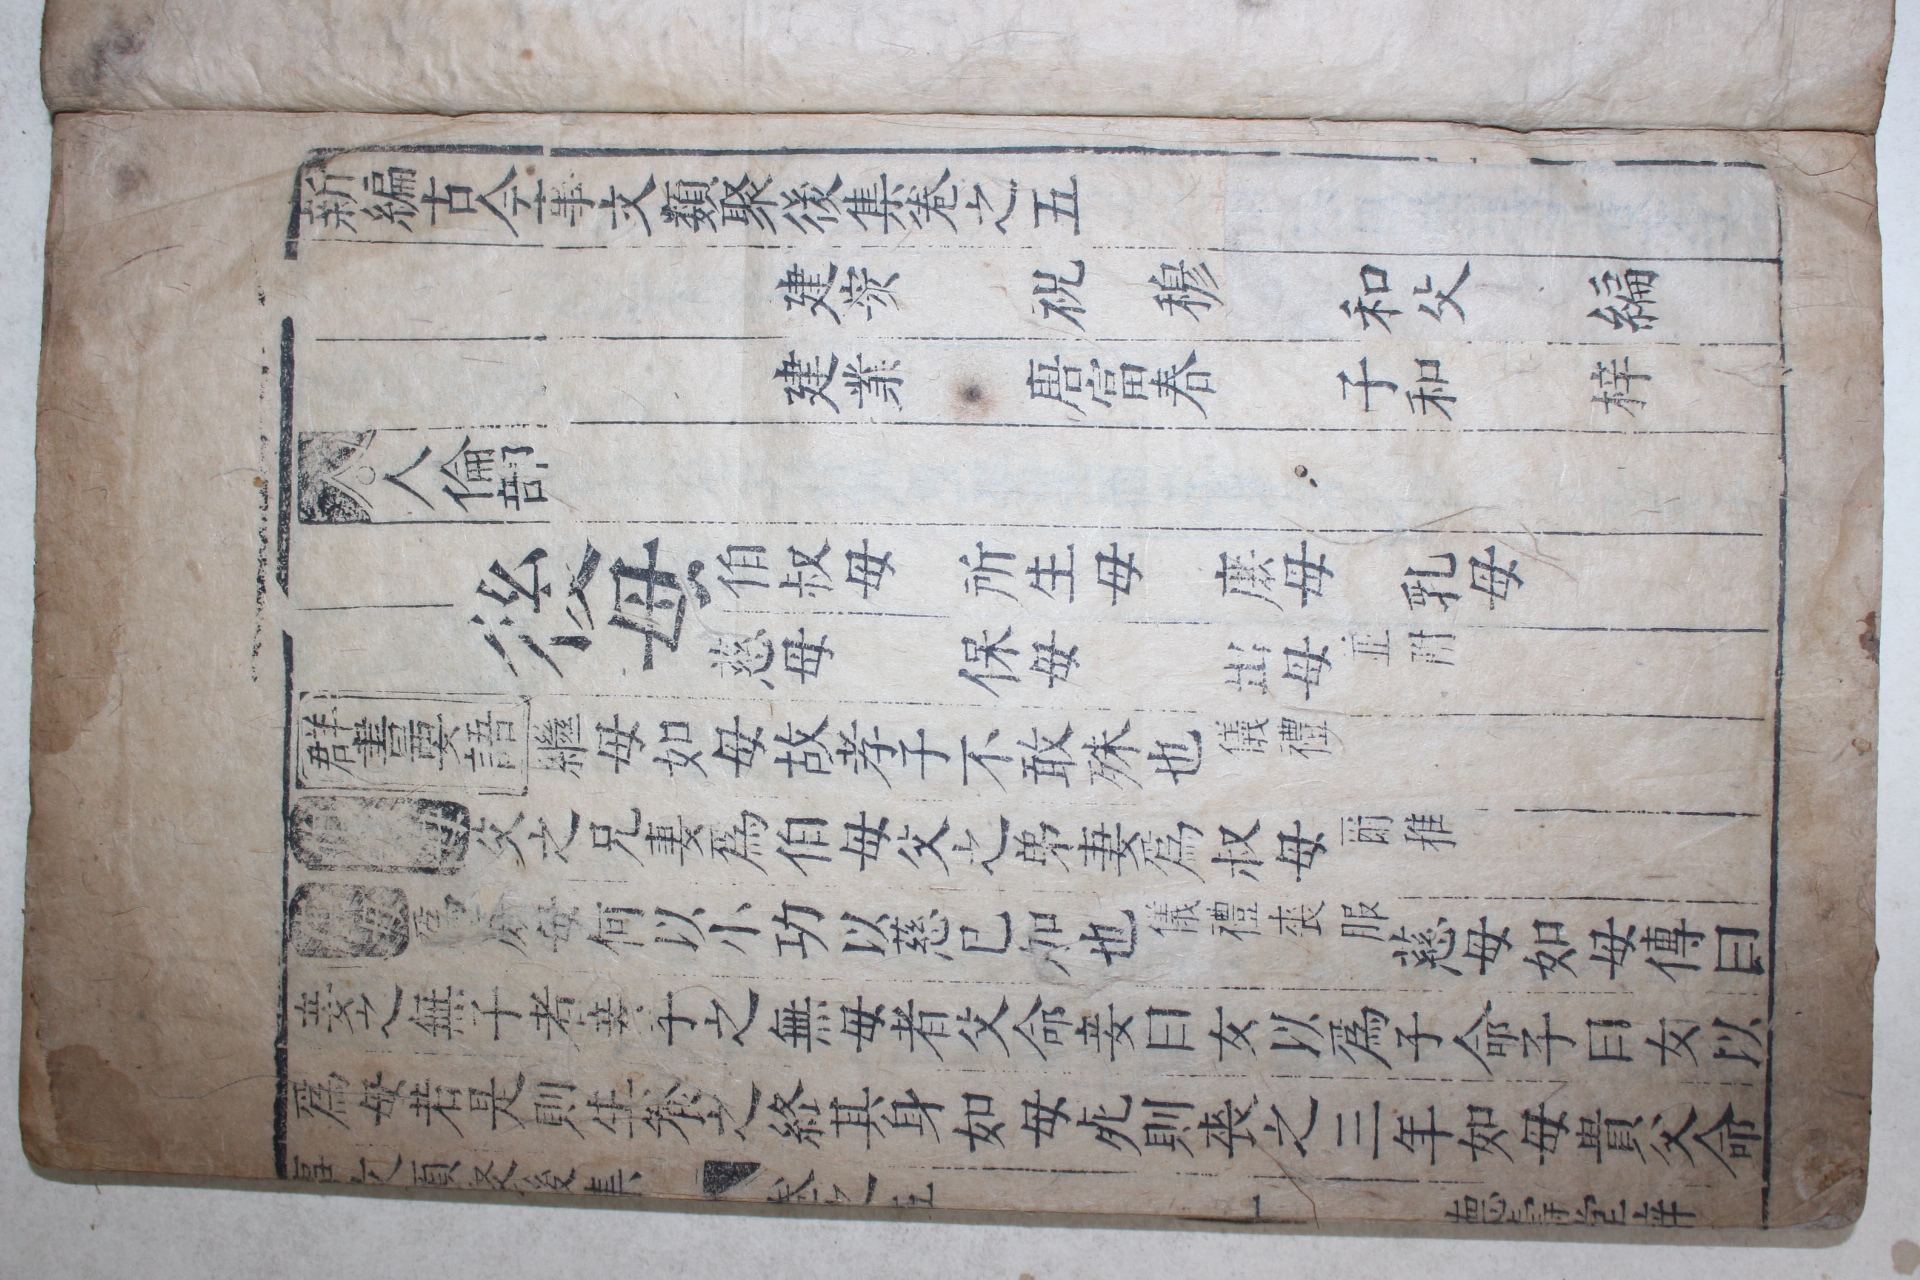 新編古今事文類聚後集卷之五
建安 祝 穆 和父 編
建業 唐富春 子和 梓
人倫部
後母
伯叔母 所生母 庶母 乳母
慈母 保母 出母 並附
群書要語 繼母如母故孝子不敢殊也 儀禮
父之兄妻爲伯母父之弟妻爲叔母 爾雅
爲庶母何以小功以慈已加也 儀禮喪服 慈母如母傳曰
妾之無子者妾子之無母者父命妾曰女以爲子命子曰女以
爲母若是則生養之終其身如母死則喪之三年如母貴父命
事文類聚後集 卷之五 一 德壽堂梓